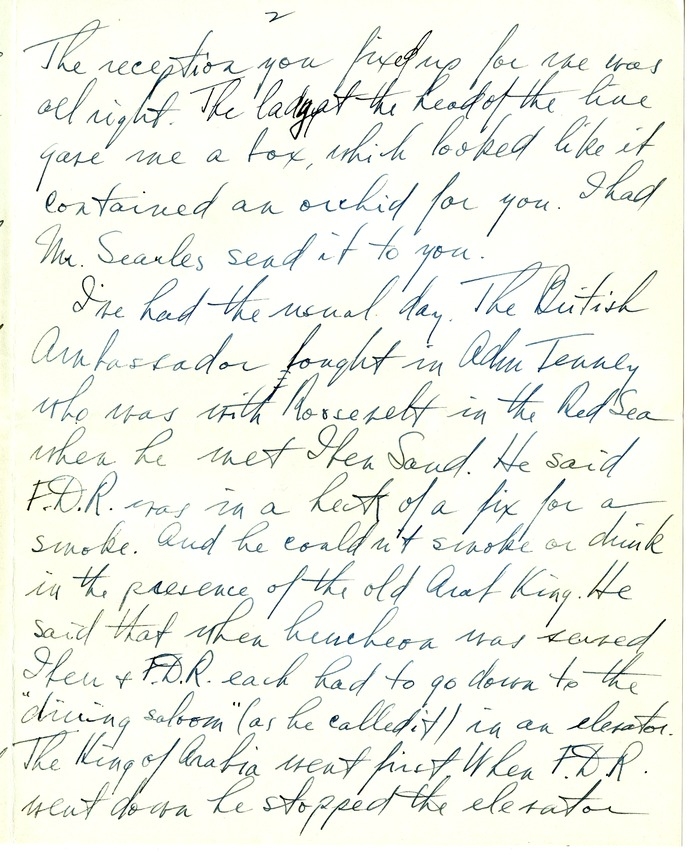 2
The reception you fixed up for me was
all right. The lady at the head of the line
gave me a box, which looked like it
contained an orchid for you. I had
Mr. Searles send it to you.
I've had the usual day. The British
Ambassador brought in Adm Tenney
who was with Roosevelt in the Red Sea
when he met Iben Saud. He said
F.D.R. was in a heck of a fix for a
smoke. And he couldn't smoke or drink
in the presence of the old Arab King. He
said that when luncheon was served
Iben & F.D.R. each had to go down to the
"dining saloom" (as he called it) in an elevator.
The King of Arabia went first. When F.D.R.
went down he stopped the elevator